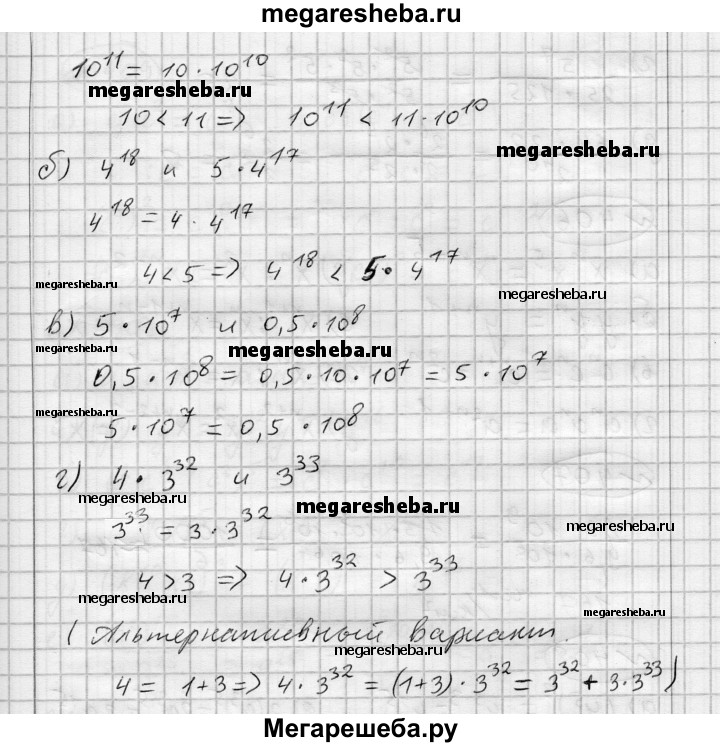 megaresheba.ru
10¹¹ = 10·10¹⁰
megaresheba.ru
10 < 11 => 10¹¹ < 11·10¹⁰
megaresheba.ru
б) 4¹⁸ и 5·4¹⁷
4¹⁸ = 4·4¹⁷
4 < 5 => 4¹⁸ < 5·4¹⁷
megaresheba.ru
megaresheba.ru
в) 5·10⁷ и 0,5·10⁸
megaresheba.ru
megaresheba.ru
0,5·10⁸ = 0,5·10·10⁷ = 5·10⁷
megaresheba.ru
5·10⁷ = 0,5·10⁸
г) 4·3³² и 3³³
megaresheba.ru
megaresheba.ru
3³³ = 3·3³²
megaresheba.ru
4 > 3 => 4·3³² > 3³³
megaresheba.ru
(Альтернативный вариант.
megaresheba.ru
4 = 1+3 => 4·3³² = (1+3)·3³² = 3³² + 3·3³³)
Мегарешеба.ру